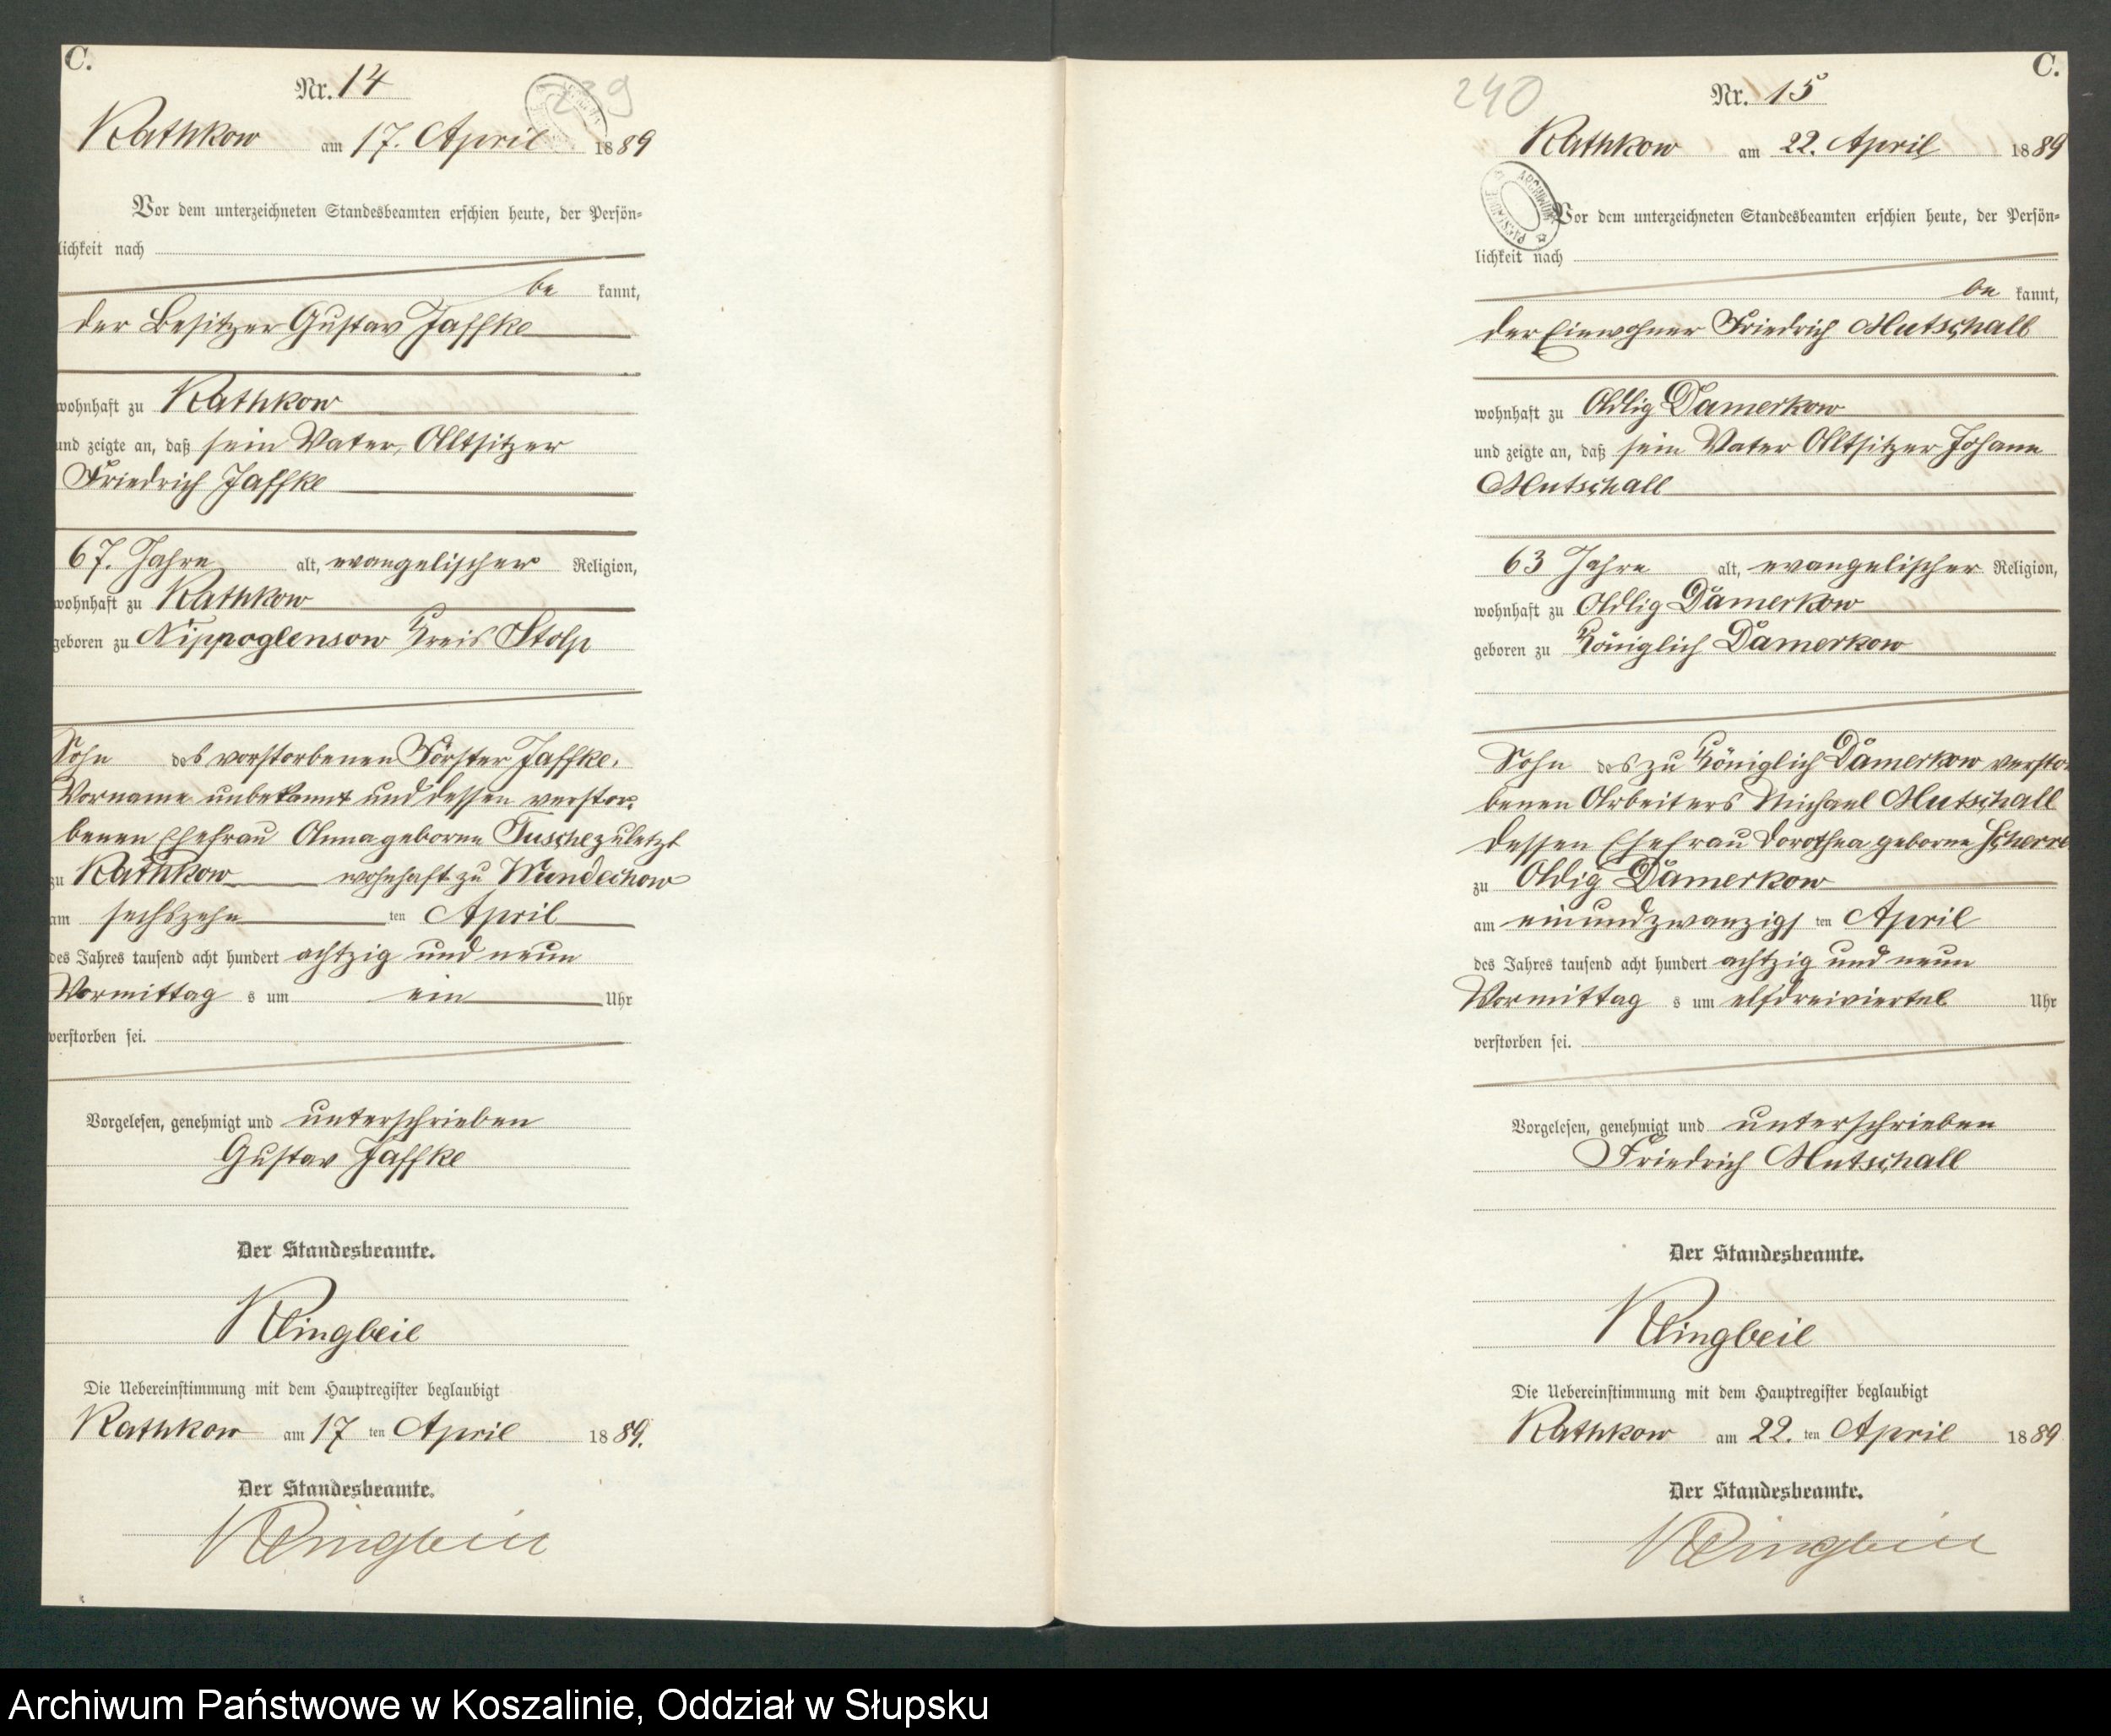 C.
Nr. 14
239
Rathkow am 17. April 1889
Vor dem unterzeichneten Standesbeamten erschien heute, der Persön-
lichkeit nach
be kannt,
der Besitzer Gustav Jaffke
wohnhaft zu Rathkow
und zeigte an, daß sein Vater, Altsitzer
Friedrich Jaffke
67. Jahre alt, evangelischer Religion,
wohnhaft zu Rathkow
geboren zu Nippoglensow Kreis Stolp
Sohn des verstorbenen Förster Jaffke,
Vorname unbekannt und dessen verstor-
benen Ehefrau Anna geborne Tusche zuletzt
zu Rathkow wohnhaft zu Wundechow
am sechszehn ten April
des Jahres tausend acht hundert achtzig und neun
Vormittag s um ein Uhr
verstorben sei.
Vorgelesen, genehmigt und unterschrieben
Gustav Jaffke
Der Standesbeamte.
Klingbeil
Die Uebereinstimmung mit dem Hauptregister beglaubigt
Rathkow am 17 ten April 1889.
Der Standesbeamte.
Klingbeil
C.
240
Nr. 15
Rathkow am 22. April 1889
ARCHIWUM
Vor dem unterzeichneten Standesbeamten erschien heute, der Persön-
lichkeit nach
be kannt,
der Einwohner Friedrich Mutschall
wohnhaft zu Adlig Damerkow
und zeigte an, daß sein Vater Altsitzer Johann
Mutschall
63 Jahre alt, evangelischer Religion,
wohnhaft zu Adlig Damerkow
geboren zu Königlich Damerkow
Sohn des zu Königlich Damerkow verstor
benen Arbeiters Michael Mutschall
dessen Ehefrau Dorothea geborne
zu Adlig Damerkow
am einundzwanzigs ten April
des Jahres tausend acht hundert achtzig und neun
Vormittag s um elfdreiviertel Uhr
verstorben sei.
Vorgelesen, genehmigt und unterschrieben
Friedrich Mutschall
Der Standesbeamte.
Klingbeil
Die Uebereinstimmung mit dem Hauptregister beglaubigt
Rathkow am 22. ten April 1889
Der Standesbeamte.
Klingbeil
Archiwum Państwowe w Koszalinie, Oddział w Słupsku